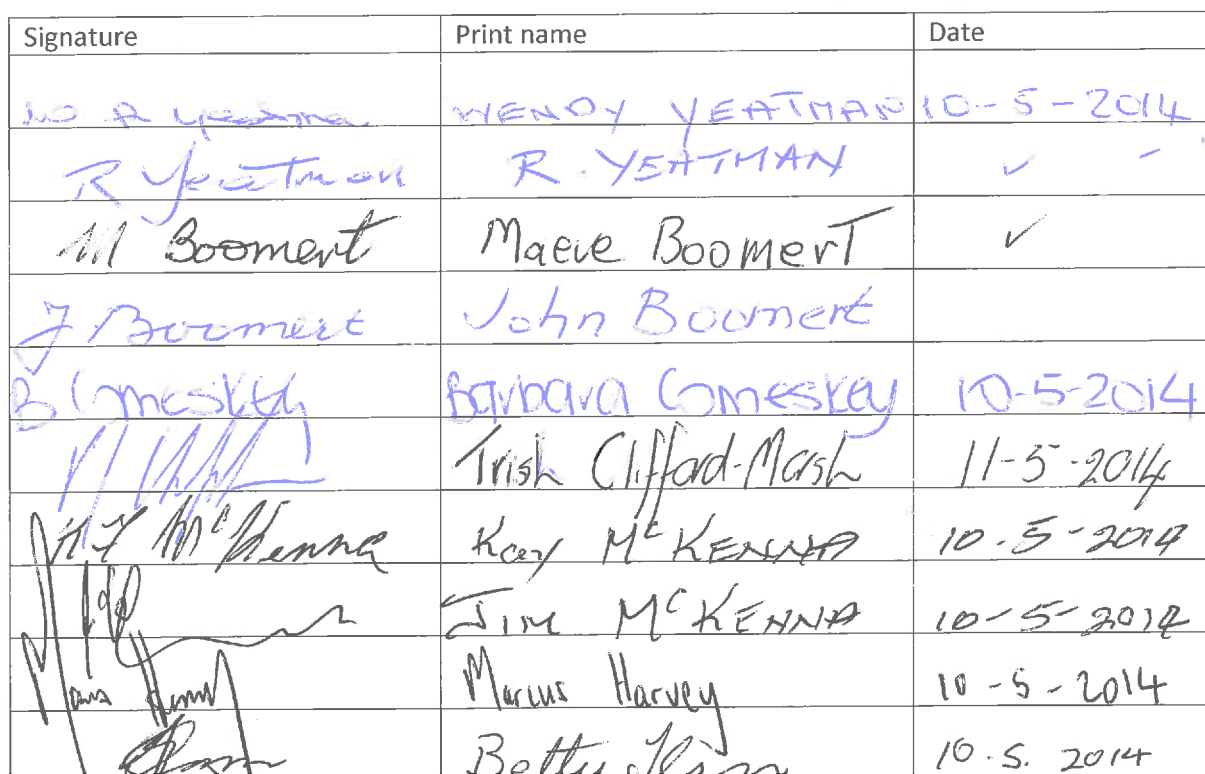 Signature Print name Date
W R Yeatman WENDY YEATMAN 10-5-2014
R Yeatman R. YEATMAN ✓
M Boomert Maeve Boomert ✓
J Boomert John Boomert
B Comeskey Barbara Comeskey 10-5-2014
Trish Clifford-Marsh 11-5-2014
McKenna Kay McKENNA 10.5-2014
Jim McKENNA 10-5-2014
Marcus Harvey 10-5-2014
Betty 10.5.2014